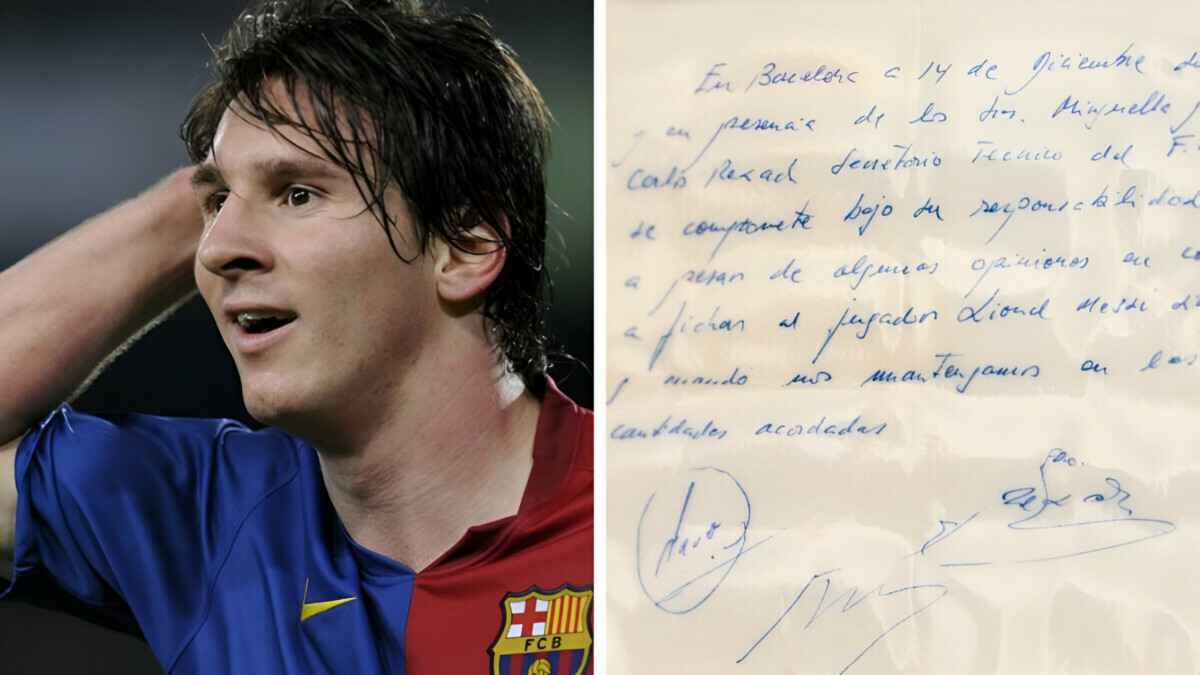 FCB
En Barcelona a 14 de Diciembre
y en presencia de los Srs. Minguella y
Carlos Rexach Secretario Tecnico del F.
se compromete bajo su responsabilidad
a pesar de algunas opiniones en co
a fichar al jugador Lionel Messi
y cuando nos mantengamos en las
cantidades acordadas